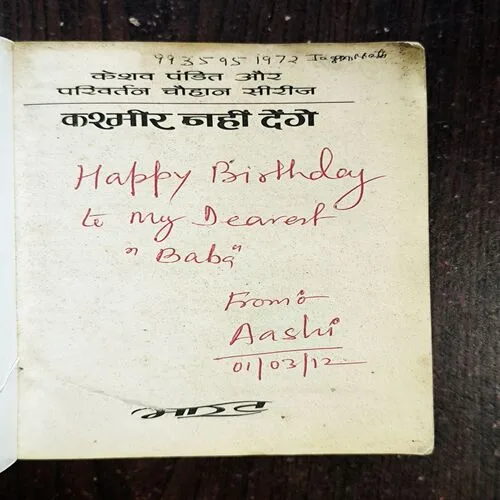 9935951972 Jagannath
केशव पंडित और
परिवर्तन चौहान सीरीज
कश्मीर नहीं देंगे
Happy Birthday
to My Dearest
"Baba"
From:
Aashi
01/03/12
भारत